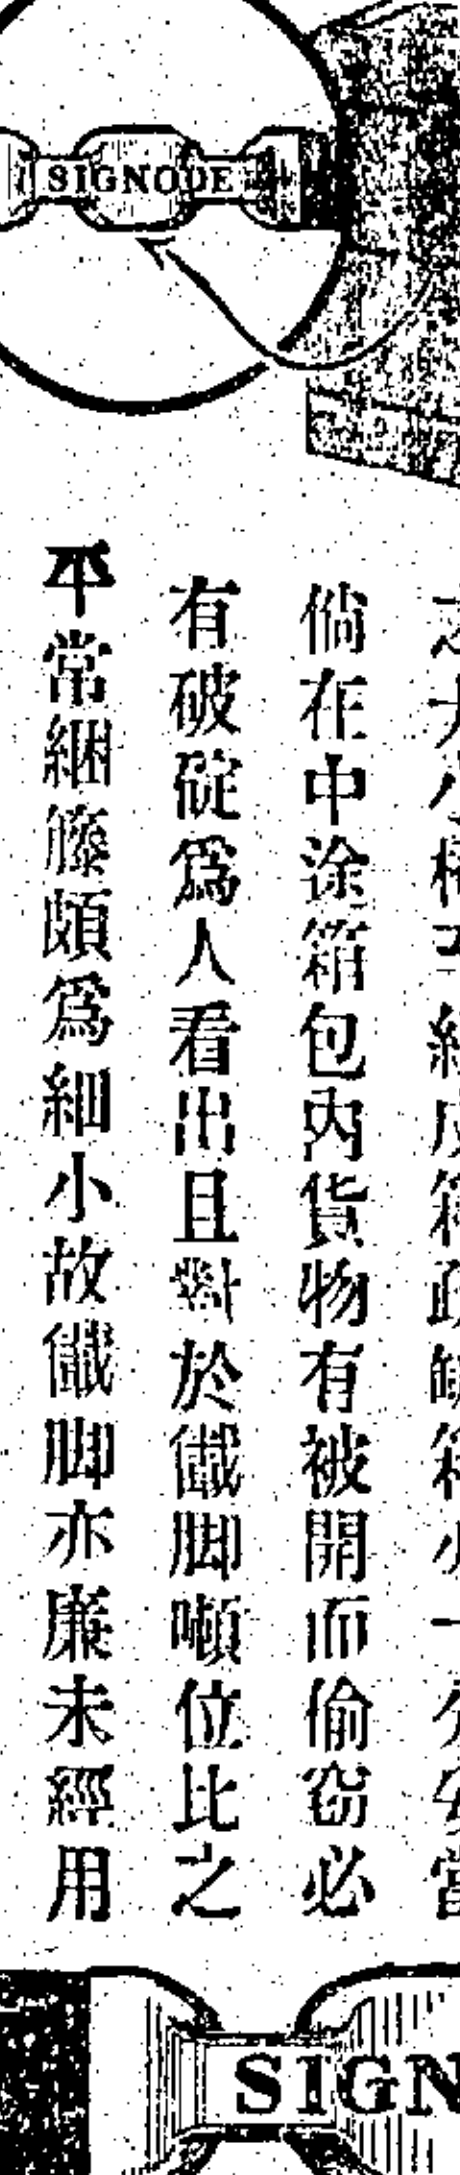 SIGNODE
倘在中途箱包內貨物有被開而偷窃必
有破碇爲人看出且對於儎脚噸位比之
平常綑籐頗爲細小故儎脚亦廉未經用
SIGN